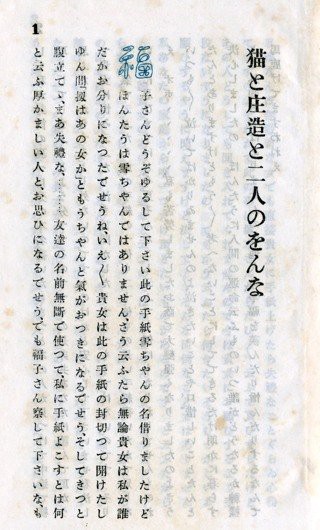 猫と庄造と二人のをんな
福子さんどうぞゆるして下さい此の手紙雪ちやんの名借りましたけど
ほんたうは雪ちやんではありません、さう云ふたら無論貴女は私が誰
だかお分りになつたでせうね、いえ〳〵貴女は此の手紙の封切つて開けたし
ゆん間「扨はあの女か」ともうちやんと氣がおつきになるでせう、そしてきつと
腹立てゝ、まあ失禮な、……友達の名前無斷で使つて、私に手紙よこすとは何
と云ふ厚かましい人と、お思ひになるでせう、でも福子さん察して下さいな、も
1